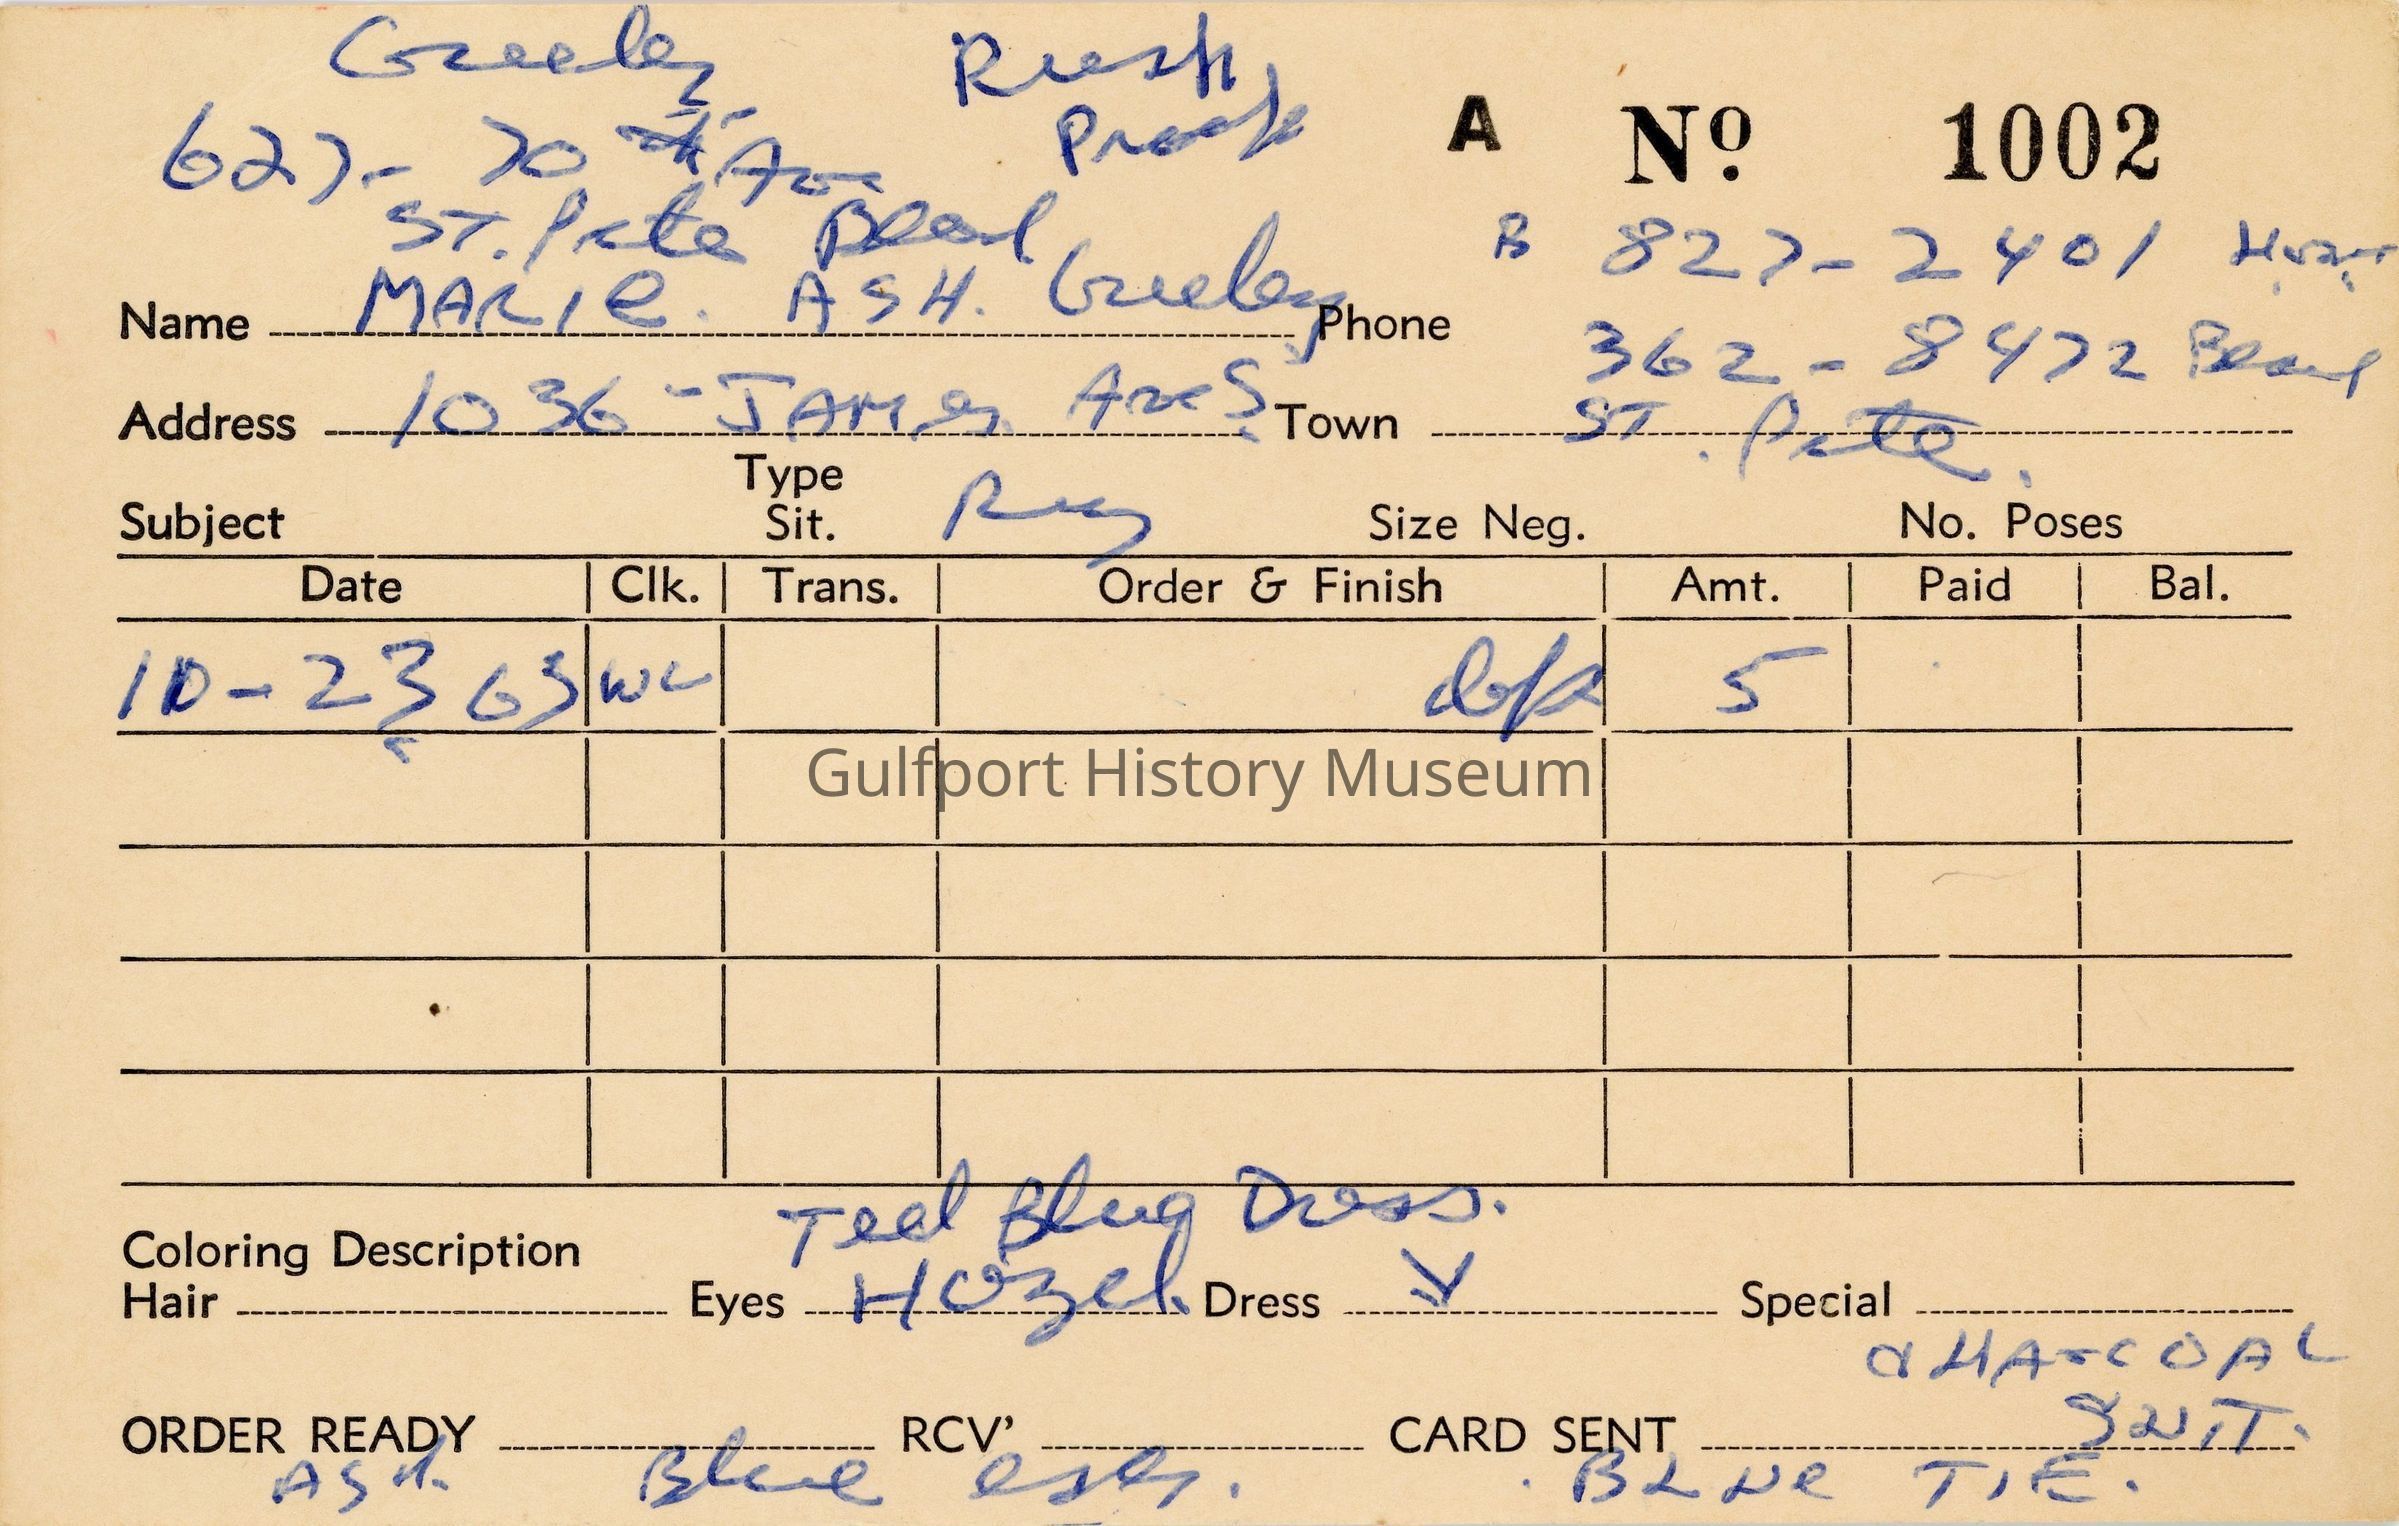 Greeley Rush
627- 70th Ave Proofs
A Nº 1002
ST. Pete Beach
B 827-2401 Home
Name MARIE. ASH. Greeley Phone
362-8472 Beach
Address 1036 - JAMES Ave S. Town ST. Pete.
Type
Subject Sit. Reg Size Neg. No. Poses
Date Clk. Trans. Order & Finish Amt. Paid Bal.
10-23 63 WL 5
Gulfport History Museum
Teal Blue Dress.
Coloring Description
Hair Eyes Hazel. Dress Special
CHARCOAL
SUIT.
ORDER READY RCV' CARD SENT
ASH. Blue eyes. BLUE TIE.